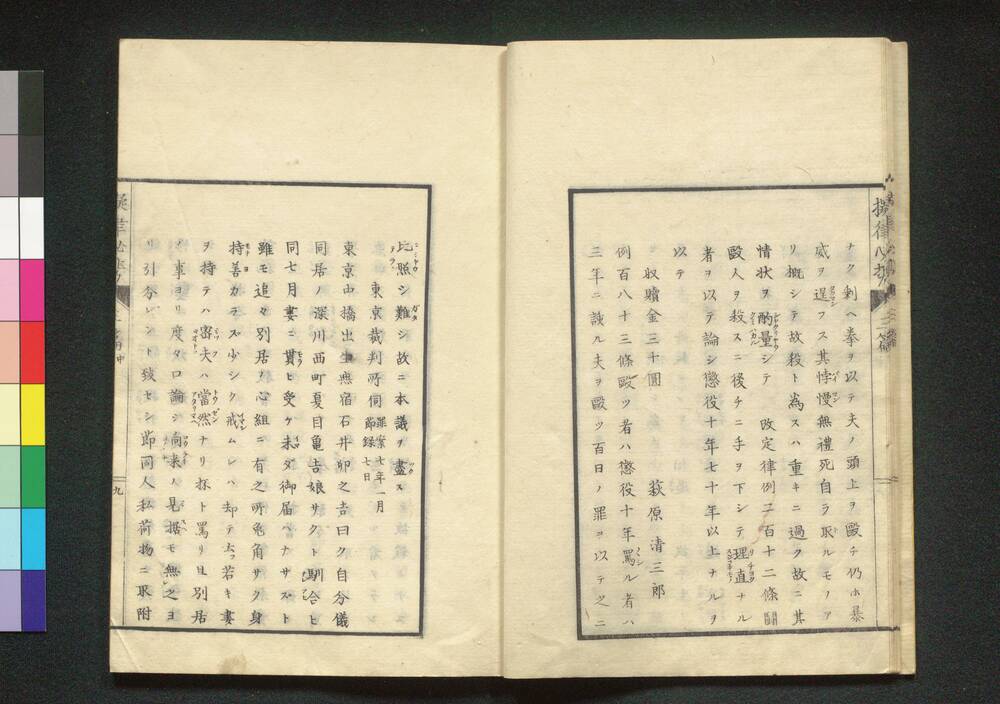 ナク剰ヘ拳ヲ以テ夫ノ頭上ヲ毆チ仍ホ暴
威ヲ逞フス其悖慢無禮死自ラ取ルモノア
リ概シテ故殺ト爲スハ重キニ過ク故ニ其
情状ヲ酌量シテ 改定律例二百十二條
毆人ヲ殺スニ後チニ手ヲ下シテ理直ナル
者ヲ以テ論シ懲役十年七十年以上ナルヲ
以テ
収贖金三十圓 萩原清三郎
例百八十三條毆ツ者ハ懲役十年罵ル者ハ
三年ニ該ル夫ヲ毆ツ百日ノ罪ヲ以テ之ニ
比照シ難シ故ニ本議ヲ盡ス
東京裁判所伺 罪案七年一月
節録七日
東京山橋出生無宿石井卯之吉曰ク自分儀
同居ノ深川西町夏目亀吉娘サクト馴合ヒ
同七月妻ニ貰ヒ受ケ未タ御届ヘナサスト
雖モ追々別居ノ心組ニ有之所兎角サク身
持善カラス少シク戒ムレハ却テ若キ妻
ヲ持テハ密夫ハ當然ナリ抔ト罵リ且別居
ノ事ヨリ度々口論シ向来ノ見据モ無之ヨ
リ引分レント談セシ節同人私荷物ニ取附
九